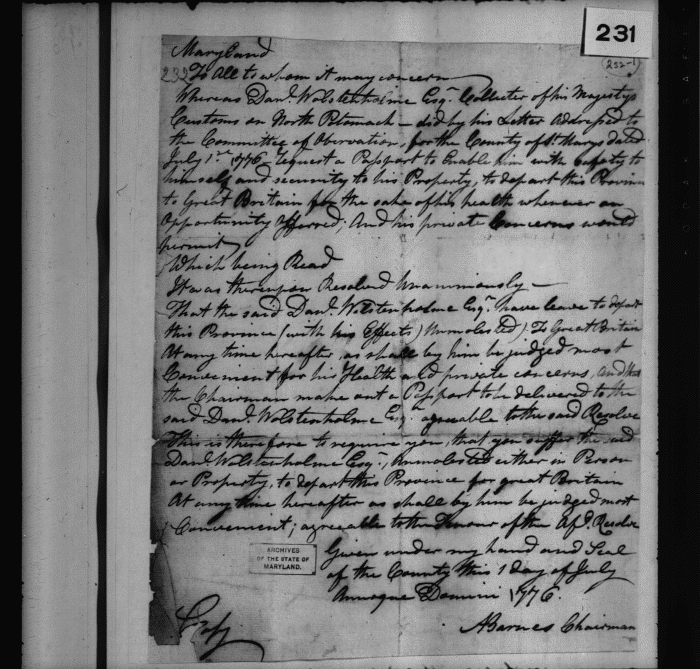 231
(232-1)
Maryland
232 To All to whom it may concern
Whereas Danl. Wolstenholme Esqr. Collecter of his Majestys
Customs on North Potomack — did by his Letter Addressed to
the Committee of Obervation, for the County of St. Marys dated
July 1st. 1776 — request a Passport to Enable him with safety to
himself and security to his Property, to depart this Province
to Great Britain for the sake of his health whenever an
Opportunity offerred; And his private Concerns would
permit
Which being Read
It was thereupon Resolved Unanimously —
That the said Danl. Wolstenholme Esqr. have leave to depart
this Province (with his Effects) Unmolested) To Great Britain
At any time hereafter, as shall by him be judged most
Convenient for his Health and private concerns, and that
the Chairman make out a Passport to be delivered to the
said Danl. Wolstenholme Esqr. agreeable to the said Resolve
This is therefore to require you, that you suffer the said
Danl. Wolstenholme Esqr., Unmolested either in Person
or Property, to depart this Province for great Britain
At any time hereafter as shall by him be judged most
Convenient; agreeable to the Tenour of the Afd. Resolve
Given under my hand and Seal
of the County this 1 day of July
Annoque Domini 1776.
ABarnes Chairman
ARCHIVES
OF THE STATE OF
MARYLAND.
Copy